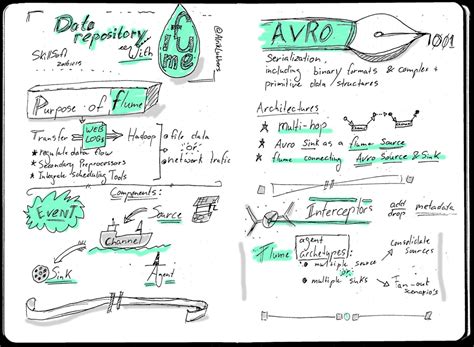 Data
repository
with
flume
SkillSoft
Purpose of flume
Transfer WEB LOGs Hadoop
* file data
or
* network trafic
* regulate data flow
* Secondary Preprocessors
* Integrate scheduling Tools
Components:
EVENT
Source
Channel
Sink
Agent
AVRO
Serialization,
including binary formats & complex &
primitive data structures
Architectures
* Multi-hop
* Avro Sink as a flume Source
* flume connecting Avro Source & Sink
Interceptors
add metadata
drop
Flume agent archetypes:
* multiple source
* multiple sinks
consolidate
sources
fan-out
scenario's